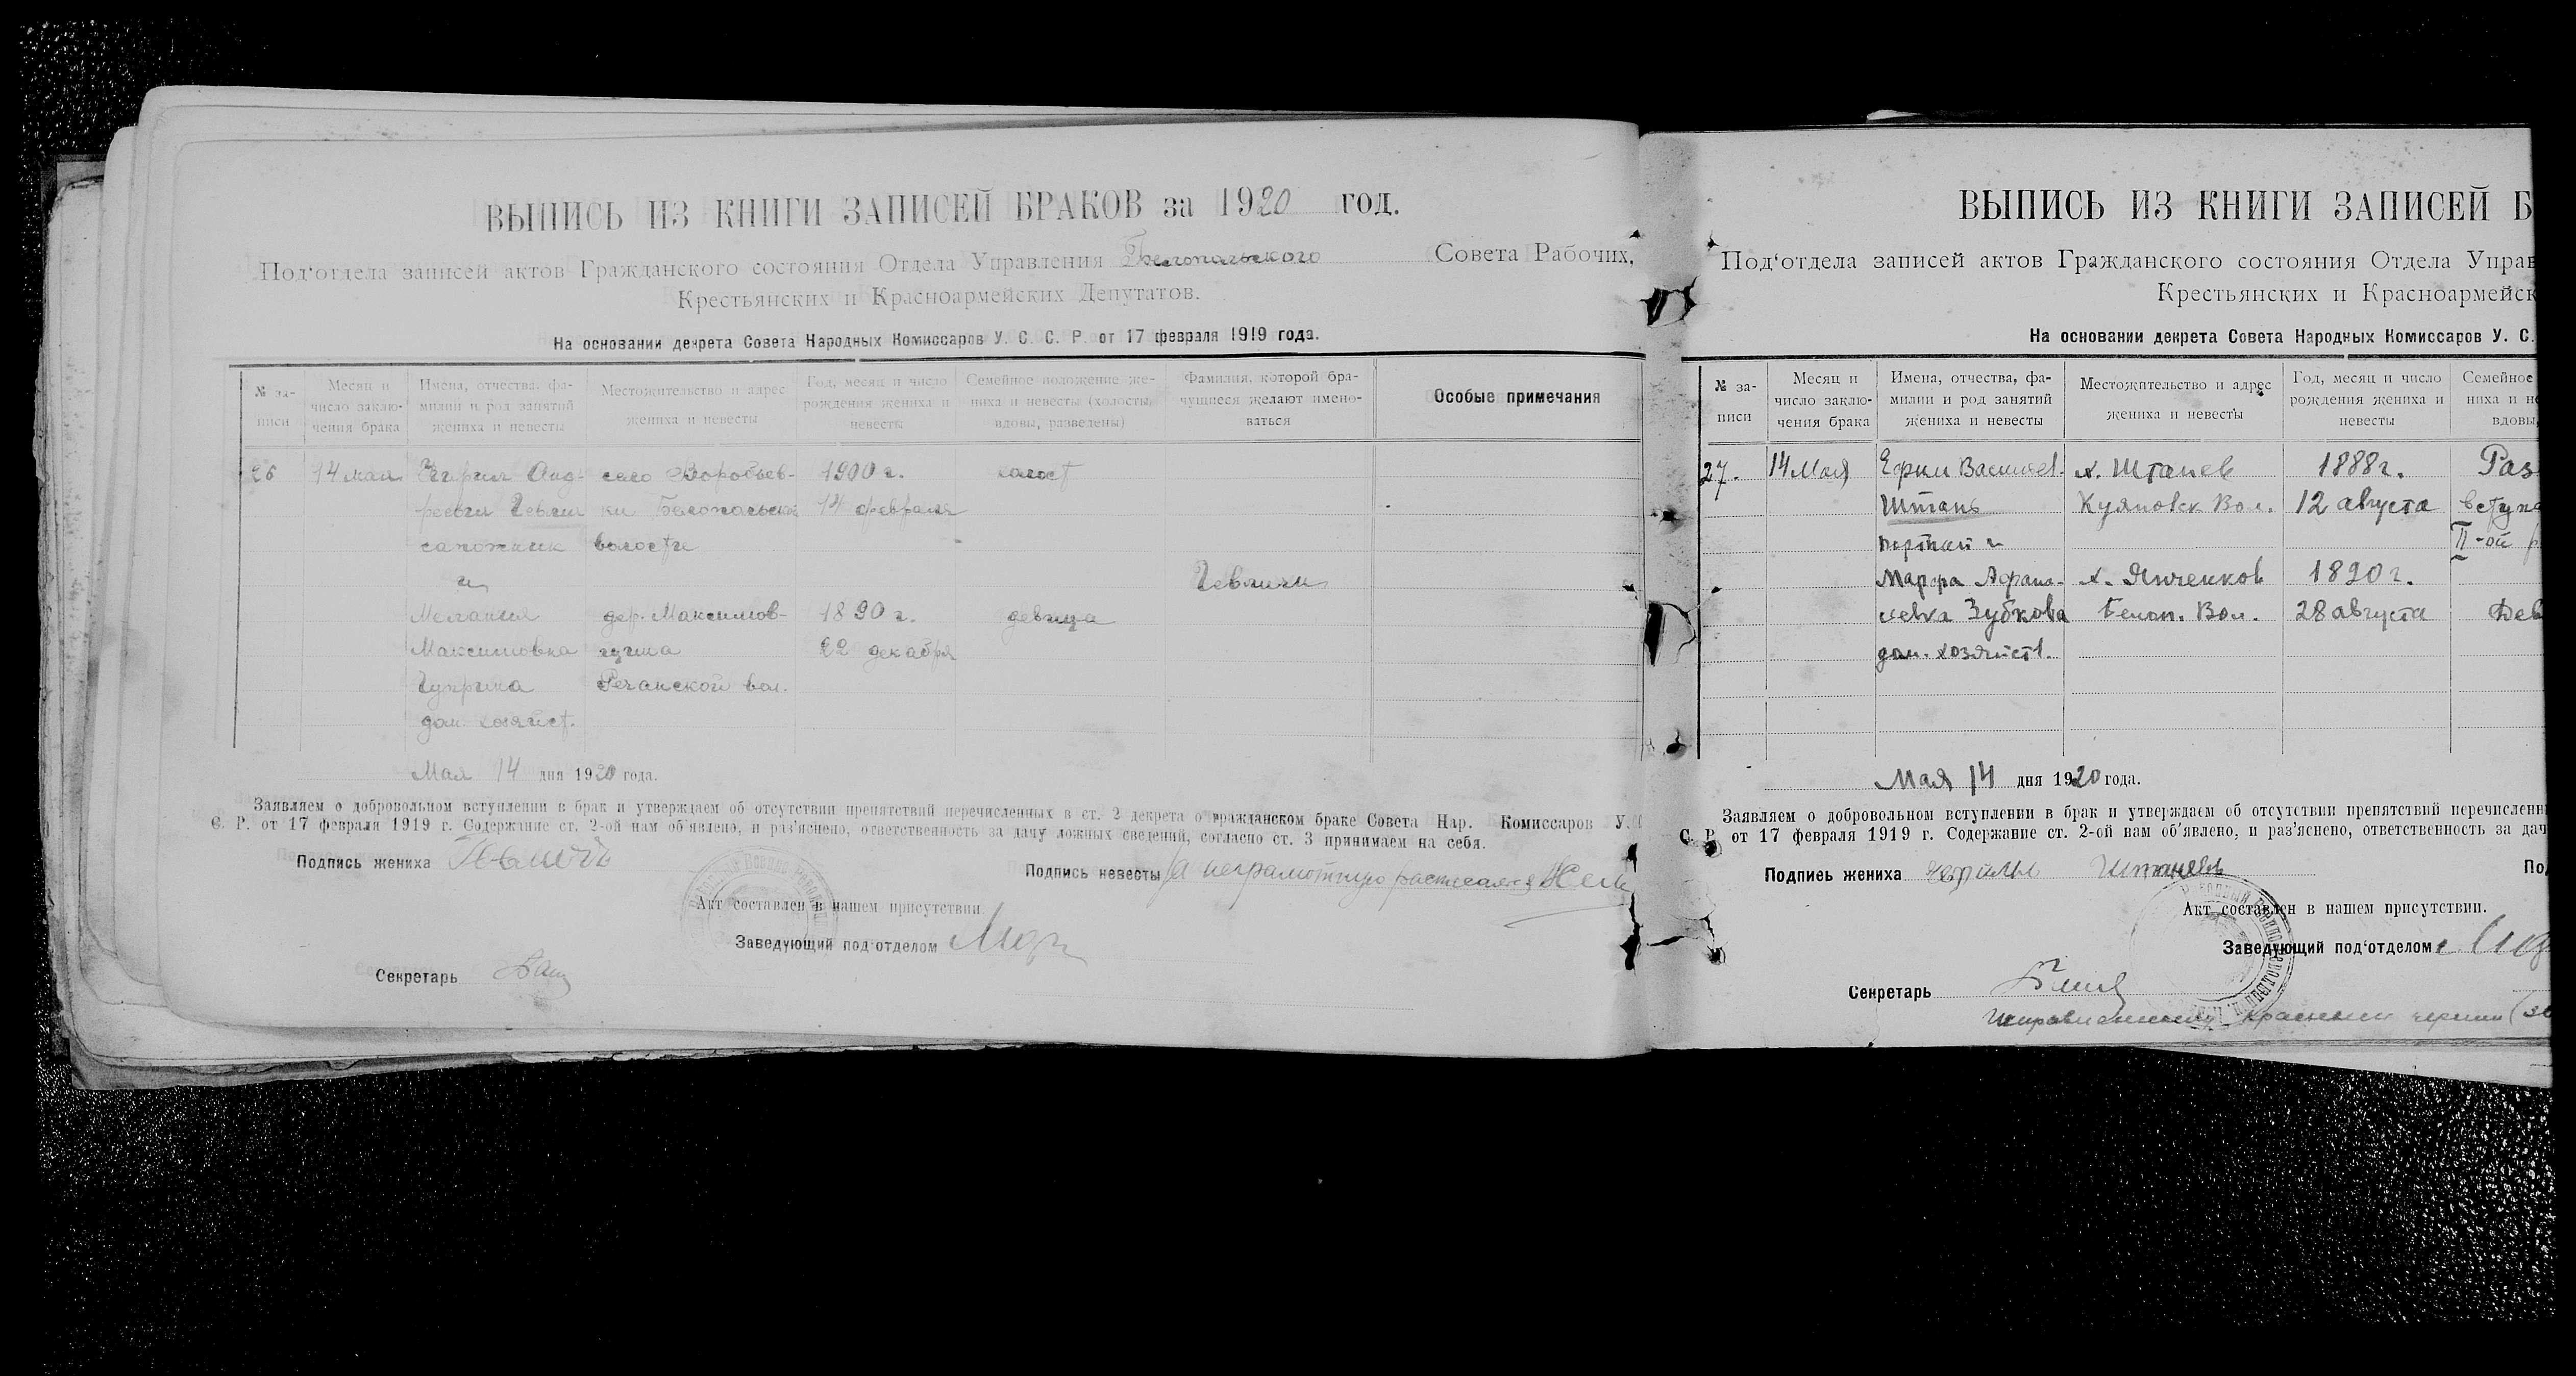 ВЫПИСЬ ИЗ КНИГИ ЗАПИСЕЙ БРАКОВ за 1920 год.
Под‘отдела записей актов Гражданского состояния Отдела Управления Белопольского Совета Рабочих,
Крестьянских и Красноармейских Депутатов.
На основании декрета Совета Народных Комиссаров У. С. С. Р. от 17 февраля 1919 года.
№ за-
писи
Месяц и
число заклю-
чения брака
Имена, отчества, фа-
милии и род занятий
жениха и невесты
Местожительство и адрес
жениха и невесты
Год, месяц и число
рождения жениха и
невесты
Семейное положение же-
ниха и невесты (холосты,
вдовы, разведены)
Фамилия, которой бра-
чущиеся желают имено-
ваться
Особые примечания
26 14 мая Анд- село Воробьев- 1900 г. холост
ки Белопольской 14 февраля
сапожник волости
и
Мелания дер. Максимов- 1890 г. девица
Максимовна щина 22 декабря
Чуприна Речанской вол.
дом. хозяйст.
Мая 14 дня 1920 года.
Заявляем о добровольном вступлении в брак и утверждаем об отсутствии препятствий перечисленных в ст. 2 декрета о гражданском браке Совета Нар. Комиссаров У.
С. Р. от 17 февраля 1919 г. Содержание ст. 2-ой нам об‘явлено, и раз‘яснено, ответственность за дачу ложных сведений, согласно ст. 3 принимаем на себя.
Подпись жениха
Подпись невесты За неграмотную расписался
Акт составлен в нашем присутствии
Заведующий под‘отделом
Секретарь
ВЫПИСЬ ИЗ КНИГИ ЗАПИСЕЙ Б
Под‘отдела записей актов Гражданского состояния Отдела Управ
Крестьянских и Красноармейск
На основании декрета Совета Народных Комиссаров У. С.
№ за-
писи
Месяц и
число заклю-
чения брака
Имена, отчества, фа-
милии и род занятий
жениха и невесты
Местожительство и адрес
жениха и невесты
Год, месяц и число
рождения жениха и
невесты
Семейное
ниха и не
вдовы,
27. 14 Мая Ефим Васильев. х. Штанев 1888 г. Раз
Штань Куяновск Вол. 12 августа вступа
портной и II-ой
Марфа Афана- х. Янченков 1890 г.
сиевна Зубкова Белоп. Вол. 28 августа Дев
дом. хозяйств.
Мая 14 дня 1920 года.
Заявляем о добровольном вступлении в брак и утверждаем об отсутствии препятствий перечисленн
С. Р. от 17 февраля 1919 г. Содержание ст. 2-ой нам об‘явлено, и раз‘яснено, ответственность за дач
Подпись жениха
Под
Акт составлен в нашем присутствии.
Заведующий под‘отделом
Секретарь